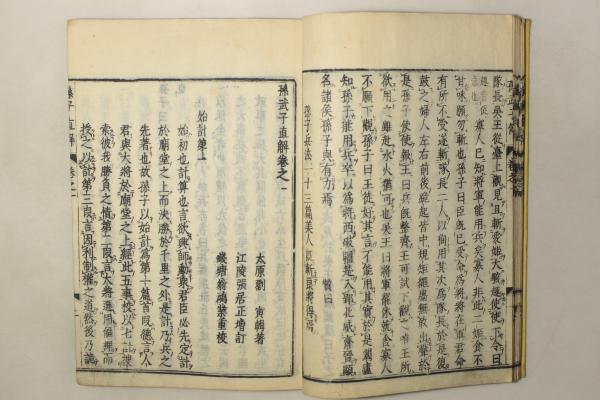 隊長吳王從臺上觀見且斬愛姬大駭趣使使下令曰
寡人已知將軍能用兵矣寡人非此二姬食不
甘味願勿斬也孫子曰臣既已受命爲將將在軍君命
有所不受遂斬隊長二人以徇用其次爲隊長於是復
鼓之婦人左右前後跪起皆中規矩繩墨無敢出聲於
是孫子使使報王曰兵既整齊王可試下觀之唯王所
欲用之雖赴水火猶可也吳王曰將軍罷休就舍寡人
不願下觀孫子曰王徒好其言不能用其實於是闔廬
知孫子能用兵卒以爲將西破彊楚入郢北威齊晉顯
名諸侯孫子與有力焉
孫子兵法一十三篇美人
孫武子直解卷之一
太原劉寅輯著
江陵張居正增訂
翁鴻業重校
始計第一
始初也計算也言欲興師動衆君臣必先定計
於廟堂之上而決勝於千里之外計乃兵之
先著也故孫子以始計爲第一篇首段總言人
君與大將於廟堂之上經此五事校以七計
索彼我勝負之情第二段言大將選用偏裨而
授之以計第三段言因利制權之道然後乃詭
孫子直解
卷之一